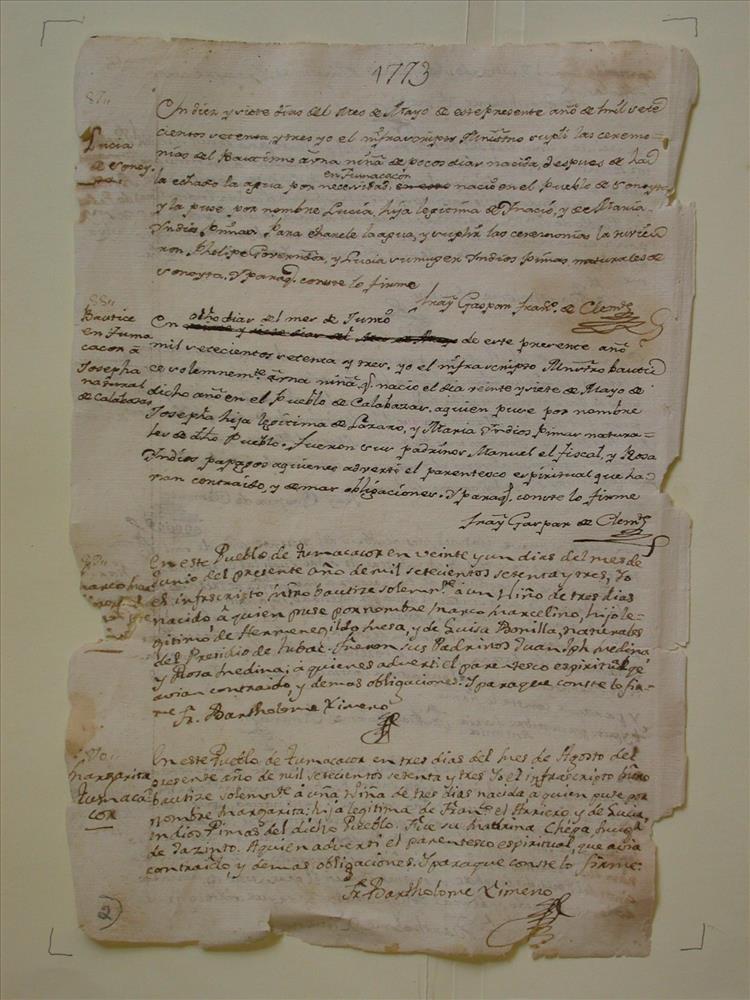 1773
87,,
Lucia
de Sonoy.
En diez y siete dias del Mes de Mayo de este presente año de mil sete
cientos setenta, y tres yo el infrascripto Ministro supli las ceremo=
nias del Bautismo â una niña de pocos dias nacida, despues de had
en Tumacacori
la echado la agua por necesidad, nacio en el Pueblo de Sonoyta
y la puse por nombre Lucia, hija legitima de Ynacio, y de Maria
Indios Pimas. Para charele la agua, y suplir las ceremonias la tuvie
ron Phelipe Governador, y Lucia su muger Yndios Pimas naturales de
Sonoyta. Y paraq. conste lo firme
fray Gaspar Franco. de Clemte
88,,
Bautice
en Tuma
cacori â
Josepha
natural
de Calabazas
ocho dias del mes de Junio
En veinte y siete dias del Mes de Mayo de este presente año
mil setecientos setenta, y tres. yo el infrascripto Ministro bauti
ce solemnemte. â una niña q. nacio el dia veinte y siete de Mayo de
dicho año en el Pueblo de Calabazas, a quien puse por nombre
Josepha hija legitima de Lazaro, y Maria Indios Pimas natura=
les de dho Pueblo. fueron sus padrinos Manuel el fiscal, y Rosa
Yndios papagos a quienes adverti el parentesco espiritual que ha
van contraido, y demas obligaciones. Y paraq. conste lo firme
fray Gaspar de Clemte
89,,
Marco Mar
En este Pueblo de Tumacacor en veinte y un dias del mes de
Junio del presente año de mil setecientos setenta y tres, Yo
el infrascripto mtro bautize solemte. â un Niño de tres dias
nacido â quien puse por nombre Marco Marcelino, hijo le
gitimo de Hermenegildo Mesa, y de Luisa Bonilla, naturales
del Presidio de Tubac. fueron sus Padrinos Juan Jph Medina
y Rosa Medina; â quienes adverti el parentesco espiritual q̃
avian contraido, y demas obligaciones. Y paraque conste lo fir
me Fr. Bartholome Ximeno
90,,
Margarita
Tumaca
cor
En este Pueblo de Tumacacor en tres dias del Mes de Agosto del
presente año de mil setecientos setenta y tres Yo el infrascripto mtro
bautize solemte â uña Niña de tres dias nacida a quien puse por
nombre Margarita; hija legitima de Franco. el Arriero y de Lucia
Indios Pimas del dicho Pueblo. Fue su Madrina Chepa muger
de Jazinto. A quien adverti el parentesco espiritual, que avia
contraido, y demas obligaciones. Y paraque conste lo firme.
Fr. Bartholome Ximeno